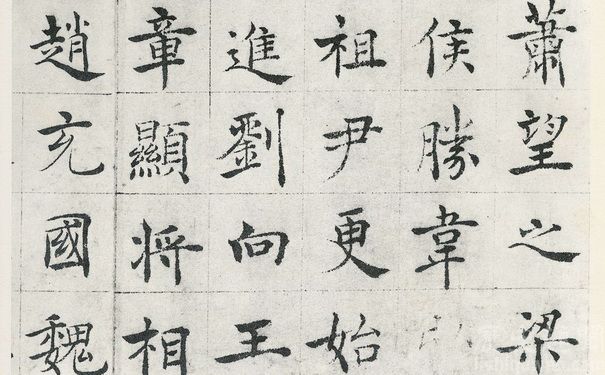 蕭望之梁
侯勝韋
祖尹更始
進劉向王
章顯將相
趙充國魏